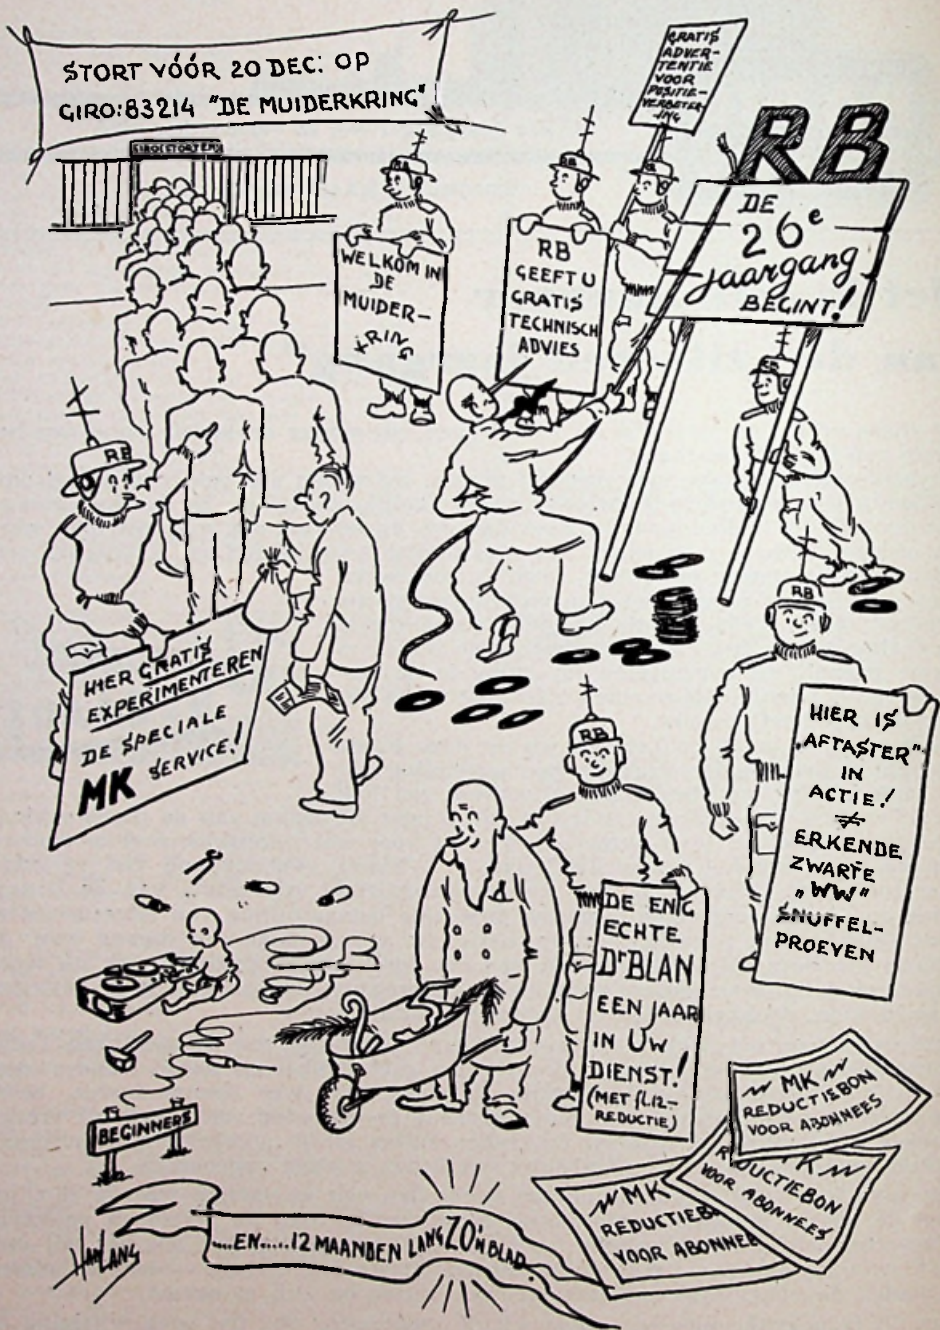 STORT VÓÓR 20 DEC: OP
GIRO:83214 "DE MUIDERKRING"
GRATIS
ADVER-
TENTIE
VOOR
POSITIE-
VERBETER-
ING
RB
DE
26e
jaargang
BEGINT!
RB
WELKOM IN
DE
MUIDER-
KRING
RB
RB
GEEFT U
GRATIS
TECHNISCH
ADVIES
RB
HIER GRATIS
EXPERIMENTEREN
DE SPECIALE
MK SERVICE!
RB
HIER IS
"AFTASTER"
IN
ACTIE!
ERKENDE
ZWARTE
„WW"
SNUFFEL-
PROEVEN
RB
DE ENIG
ECHTE
Dr BLAN
EEN JAAR
IN UW
DIENST!
(MET fl.12-
REDUCTIE)
BEGINNERS
MK
REDUCTIEBON
VOOR ABONNEES
MK
REDUCTIEB
VOOR ABONNEE
K
DUCTIEBON
VOOR ABONNEES
....EN.....12 MAANDEN LANG ZO'N BLAD.
HANLANG